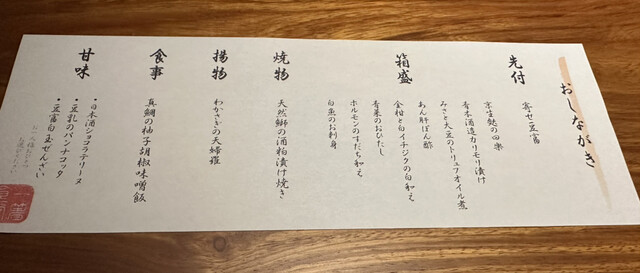 おしながき
先付
寄せ豆富
箱盛
京生麩の田楽
青木酒造カリモリ漬け
みさと大豆のトリュフオイル煮
あん肝ぽん酢
金柑と白イチジクの白和え
青菜のおひたし
ホルモンのすだち和え
白魚のお刺身
焼物
天然鰤の酒粕漬け焼き
揚物
わかさぎの天婦羅
食事
真鯛の柚子胡椒味噌飯
甘味
・日本酒ショコラテリーヌ
・豆乳のパンナコッタ
・豆富白玉ぜんざい